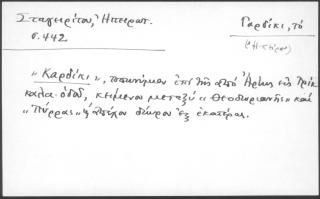 Σταγειρίτου, Ἠπειρωτ.
σ. 442
Γαρδίκι, τό
(Ἤπειρος)
"Καρδίκι", τοπωνύμιον ἐπὶ τῆς ἀπὸ Ἄρτης εἰς Τρίκ
καλα ὁδοῦ, κείμενον μεταξὺ "Θεοδωριανῆς" καὶ
"Πύρρας" ἀπέχον δίωρον ἐξ ἑκατέρας.